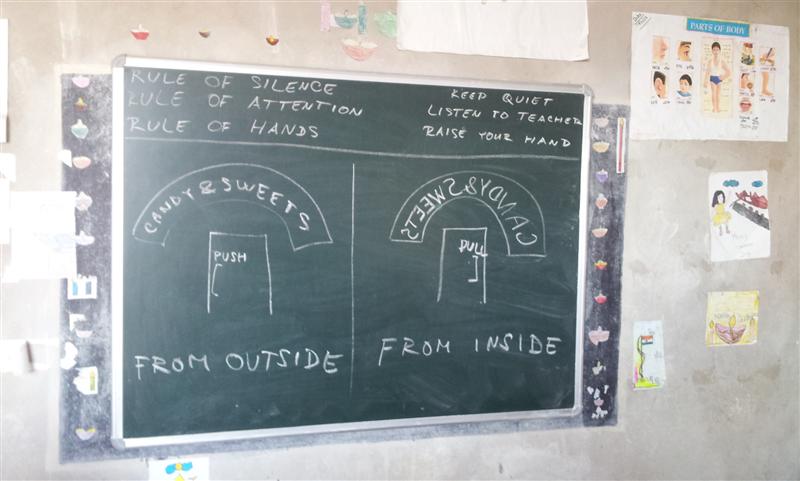 RULE OF SILENCE
RULE OF ATTENTION
RULE OF HANDS
KEEP QUIET
LISTEN TO TEACHER
RAISE YOUR HAND
CANDY & SWEETS
PUSH
FROM OUTSIDE
CANDY & SWEETS
PULL
FROM INSIDE
PARTS OF BODY